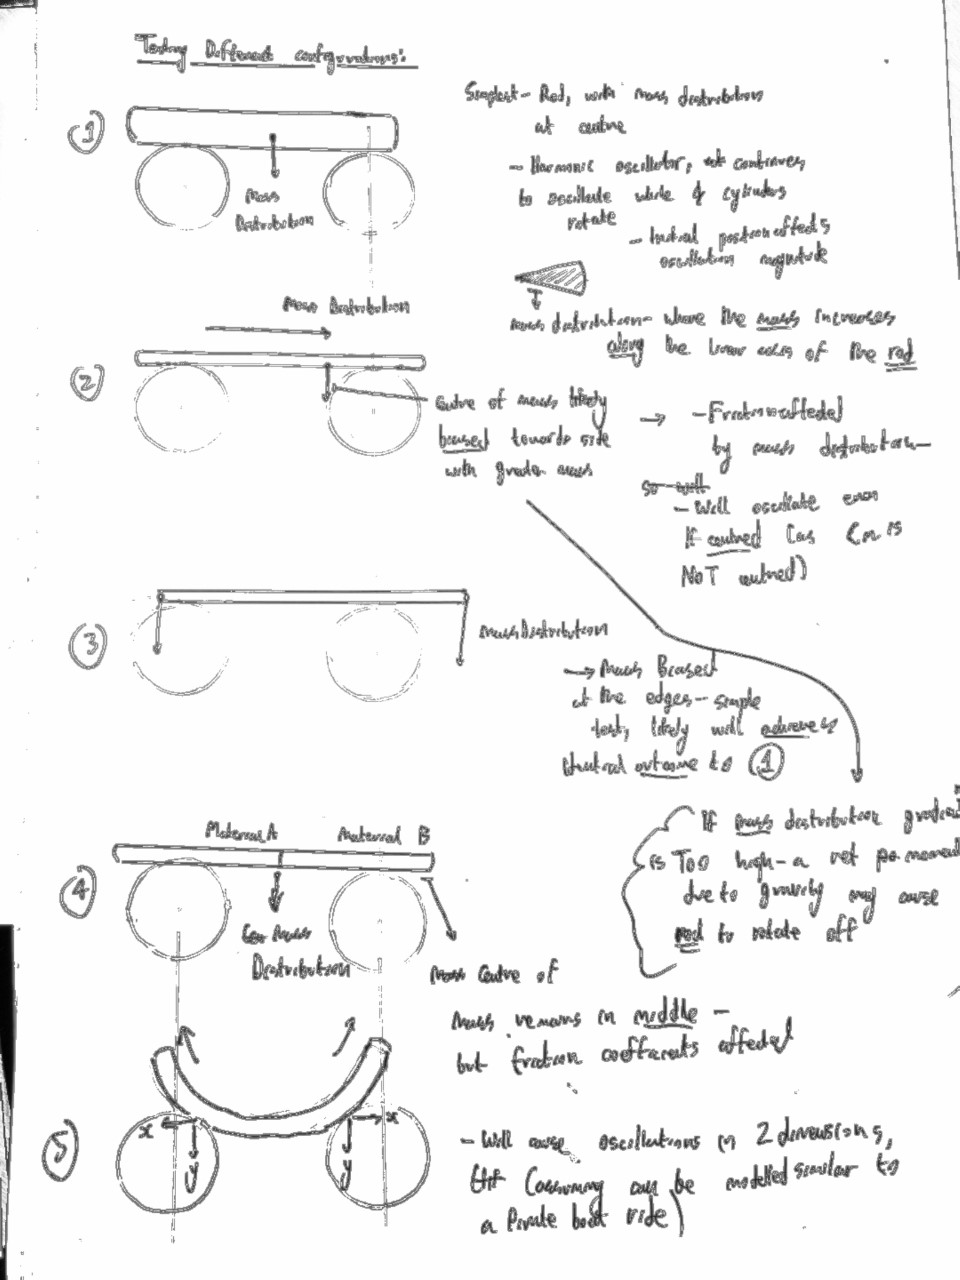 Testing Different configurations:
1
Mass
Distribution
Simplest - Rod, with mass distribution
at centre
- Harmonic oscillator, continues
to oscillate while cylinders
rotate
- Initial position affects
oscillation magnitude
Mass Distribution
mass distribution - where the mass increases
along the linear axis of the rod
2
Centre of mass likely
biased towards side
with greater mass
→ - Friction affected
by mass distribution -
so will
- Will oscillate even
If centred (as Cm is
NOT centred)
3
Mass Distribution
→ Mass Biased
at the edges - simple
test, likely will
identical outcome to 1
If mass distribution
is Too high - a net moment
due to gravity may cause
rod to rotate off
Material A Material B
4
Mass
Distribution
Centre of
Mass remains in middle -
but friction coefficients affected
5
x x
y y
- Will cause oscillations in 2 dimensions,
can be modelled similar to
a Pirate boat ride)